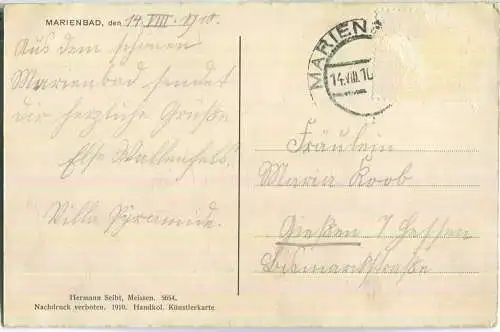 MARIENBAD, den 14. VIII. 1910.
Aus dem schönen
Marienbad sendet
dir herzliche Grüße
Else Wallenfels.
Villa Pyramide.
Hermann Seibt, Meissen. 5054.
Nachdruck verboten. 1910. Handkol. Künstlerkarte
MARIEN
14.VIII.10
Fräulein
Maria Koob
Gießen / Hessen
Bismarckstraße